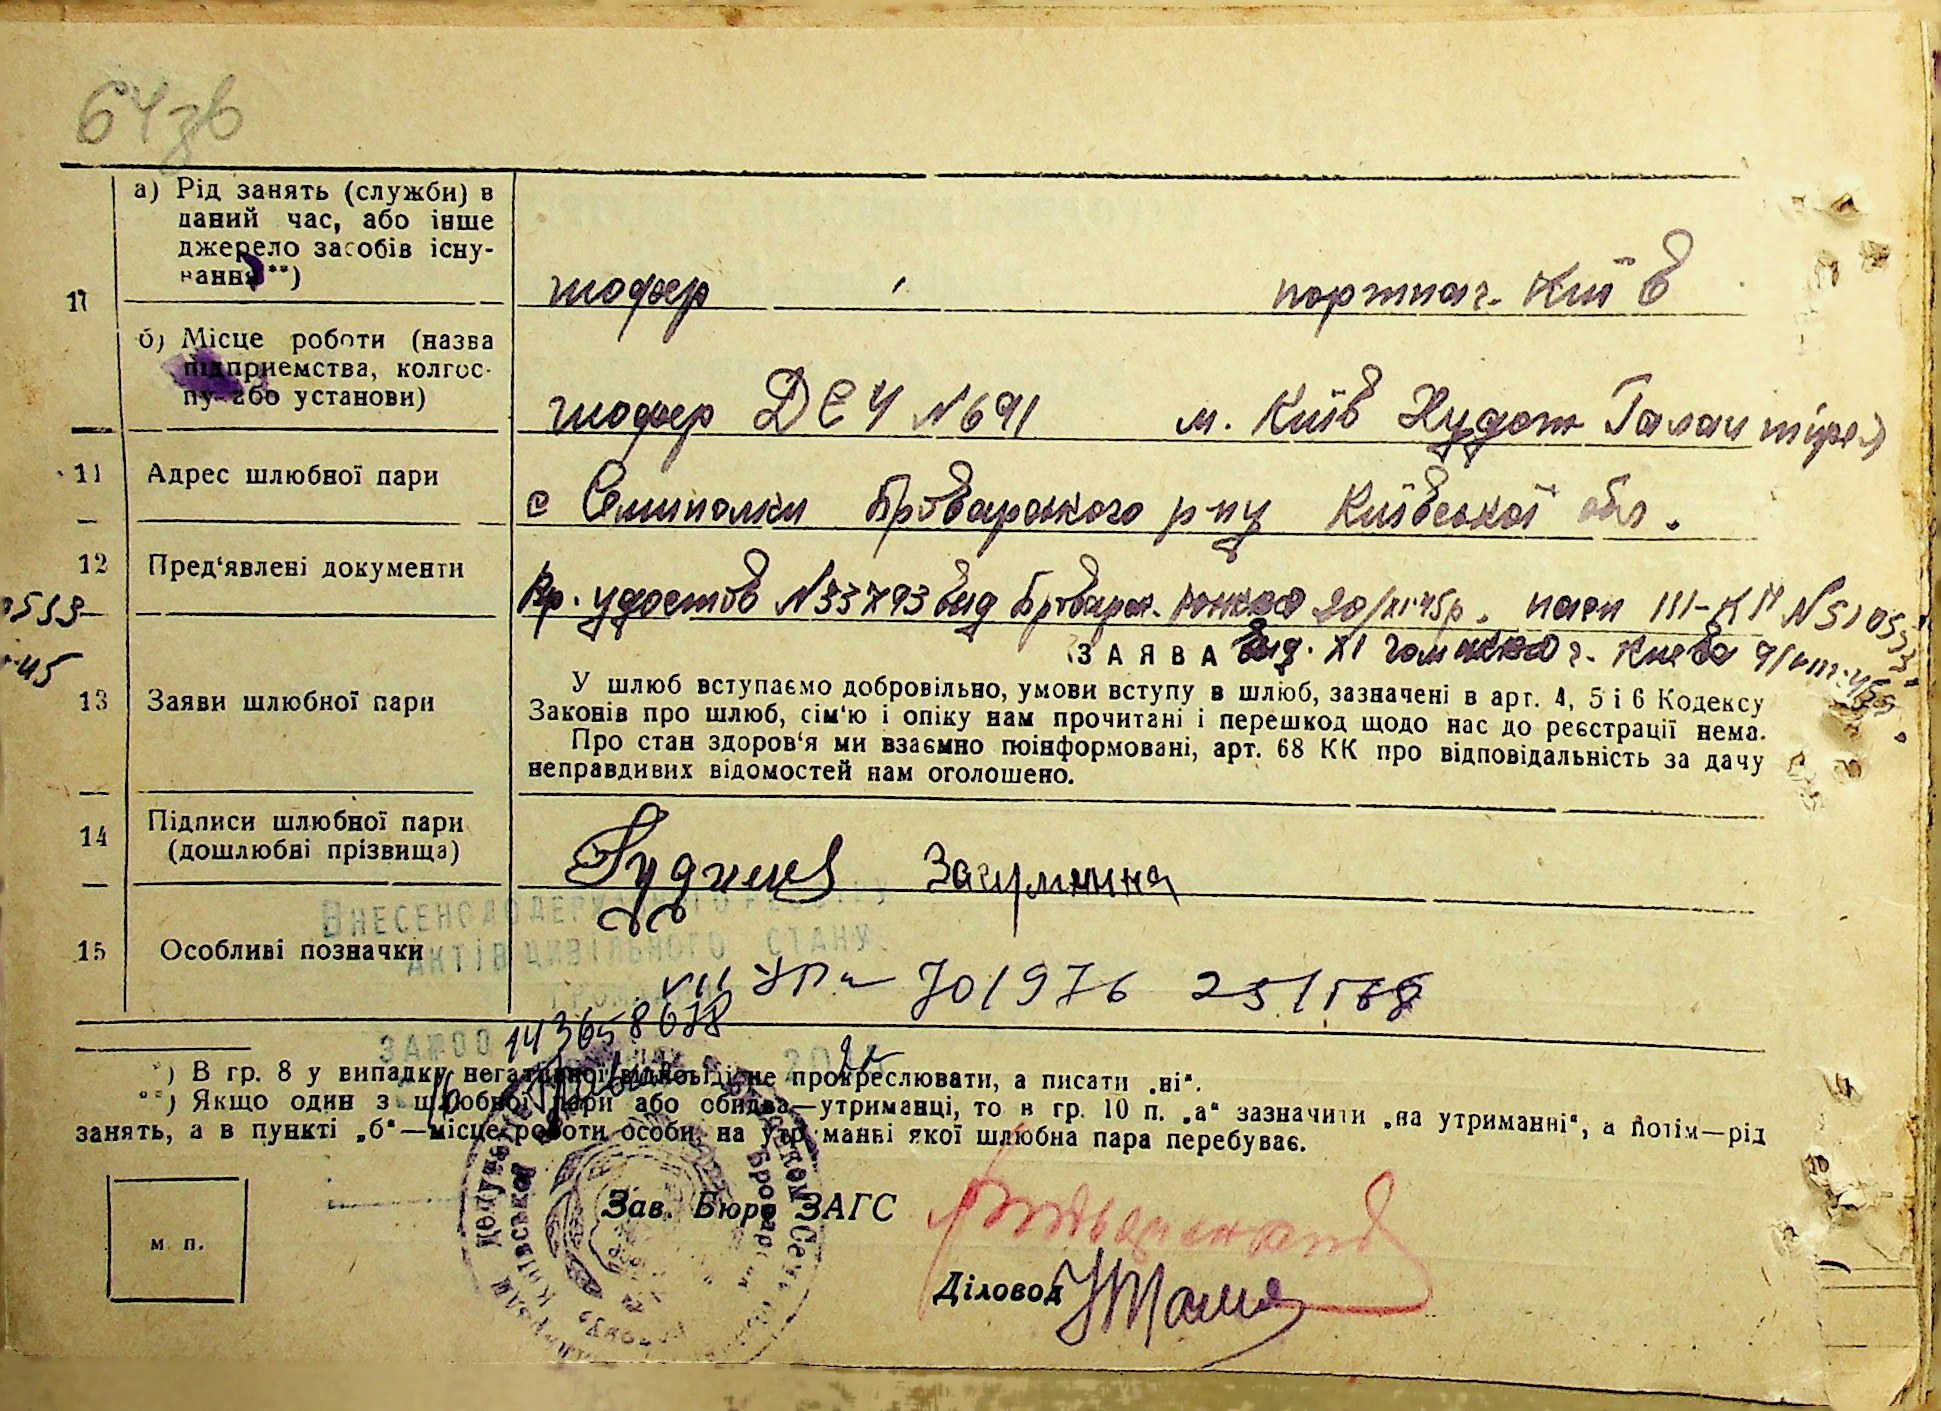 64зв
а) Рід занять (служби) в
даний час, або інше
джерело засобів існу-
вання **)
шофер портнаг. Київ
б) Місце роботи (назва
підприємства, колгос-
пу або установи)
шофер ДЕУ №691 м. Київ Худож Галантіреі
11 Адрес шлюбної пари
с Семиполки Броварського р-ну Київської обл.
12 Пред'явлені документи
Вр. удостов №33793 вид Броварск. 20/XI-45р. пасп III-КП №510533
ЗАЯВА вид. XI г. Киева
13 Заяви шлюбної пари
У шлюб вступаємо добровільно, умови вступу в шлюб, зазначені в арт. 4, 5 і 6 Кодексу
Законів про шлюб, сім'ю і опіку нам прочитані і перешкод щодо нас до реєстрації нема.
Про стан здоров'я ми взаємно поінформовані, арт. 68 КК про відповідальність за дачу
неправдивих відомостей нам оголошено.
14 Підписи шлюбної пари
(дошлюбні прізвища)
15 Особливі позначки
ВНЕСЕНО ДО ДЕРЖАВНОГО РЕЄСТРУ
АКТІВ ЦИВІЛЬНОГО СТАНУ
ГРОМАДЯН
VII 701976
*) В гр. 8 у випадку негативної відповіді не прокреслювати, а писати „ні“.
**) Якщо один з шлюбної пари або обидва—утриманці, то в гр. 10 п. „а“ зазначити „на утриманні“, а потім—рід
занять, а в пункті „б“—місце роботи особи, на утриманні якої шлюбна пара перебуває.
м. п.
Зав. Бюро ЗАГС
Діловод